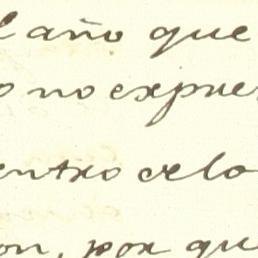 l año que
o no expre
entro de lo
on, por qu